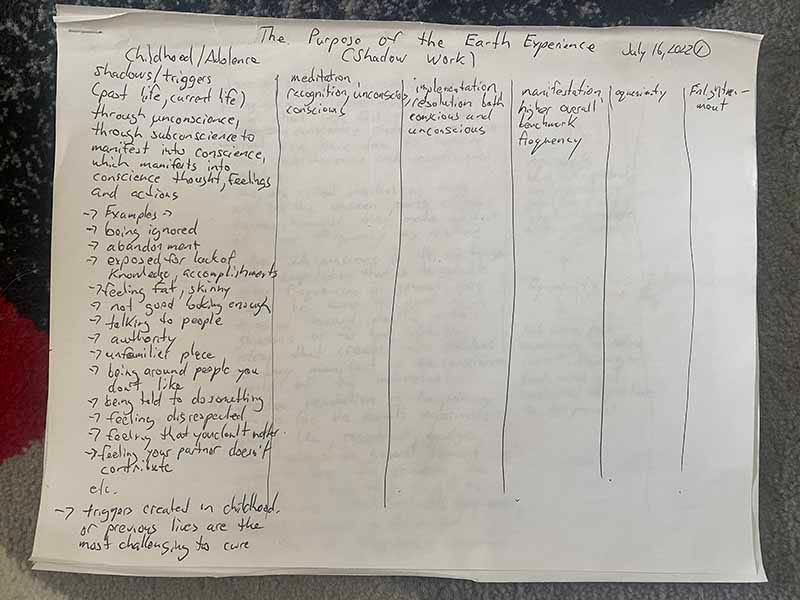 The Purpose of the Earth Experience
(Shadow Work)
July 16, 2022 ①
Childhood/Ablolence
shadows/triggers
(past life, current life)
through unconscience,
through subconscience to
manifest into conscience,
which manifests into
conscience thought, feelings
and actions
-> Examples ->
-> being ignored
-> abandonment
-> exposed for lack of
knowledge, accomplishments
-> feeling fat, skinny
-> not good looking enough
-> talking to people
-> authority
-> unfamilier place
-> being around people you
don't like
-> being told to do something
-> feeling disrespected
-> feeling that you don't matter.
-> feeling your partner doesn't
contribute
etc.
-> triggers created in childhood
or previous lives are the
most challenging to cure
meditation
recognition, unconscious,
conscious
implementation,
resolution both
conscious and
unconscious
manifestation,
higher overall
benchmark
frequency
Enlighten-
ment